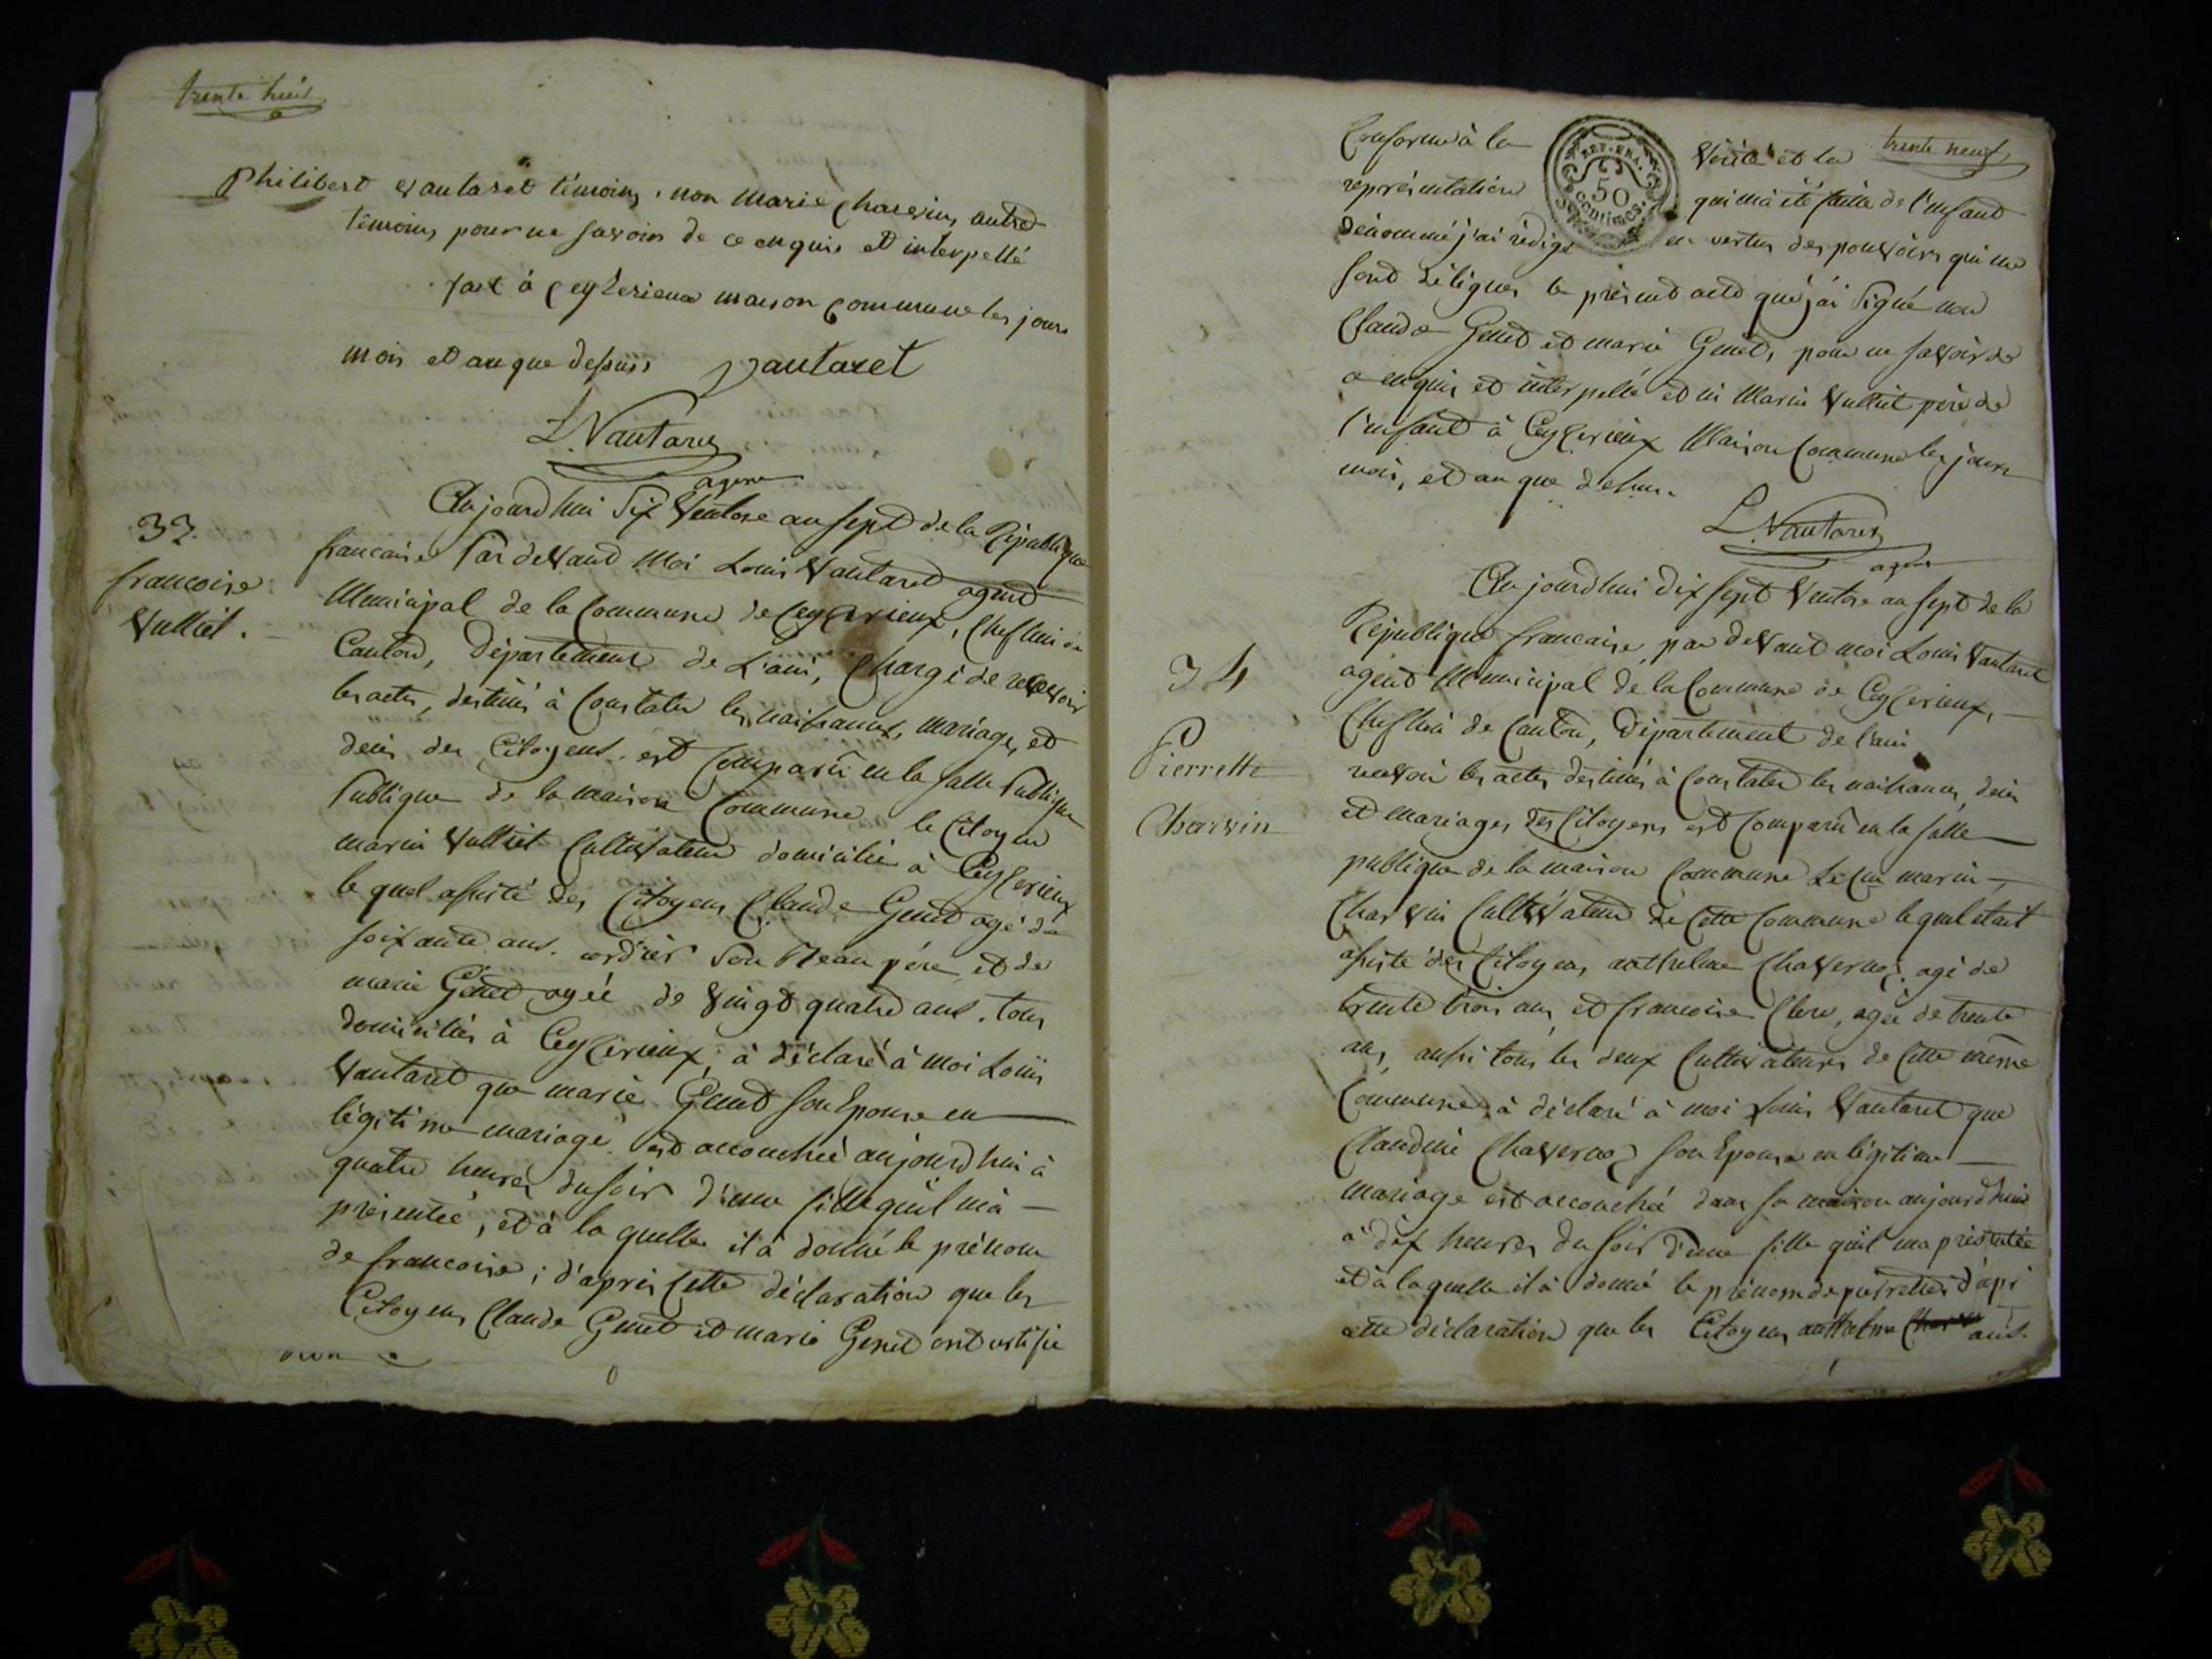 trente huit
Philibert vautaret témoins, non marie charvin autre
témoins pour ne savoir de ce enquis et interpellé
fait à ceyzerieux maison commune les jours
mois et an que dessus vautaret
L. Vautaret
agent
33.
francoise
Vulliet.
Aujourdhui Six Ventose an sept de la République
francaise Par devant Moi Louis Vautaret agent
Municipal de la Commune de Ceyzerieux, Chef lieu de
Canton, Département de L'ain, Chargé de recevoir
les actes, destinés à Constater les naissances, mariages, et
decès des Citoyens. est Comparû en la salle Publique
Publique de la maison Commune le Citoyen
marin Vulliet Cultivateur domicilié à Ceyzerieux
le quel assisté des Citoyens Claude Genet agé de
soixante ans. cordier Son Beau père, et de
marie Genet agée de Vingt quatre ans. tous
domiciliés à Ceyzerieux, à déclaré à Moi Louis
Vautaret que marie Genet son Epouse en
légitime mariage. est accouchée aujourdhui à
quatre heures du soir d'une fille quil m'a
présentée, et à la quelle il à donné le prénom
de francoise; d'après Cette déclaration que les
Citoyens Claude Genet et marie Genet ont certifié
trente neuf
Conforme à la Vérité et la
REP. FRA.
50
centimes.
représentation qui m'a été faite de l'enfant
dénommé j'ai rédigé en vertus des pouvoirs qui me
sont délégués le présent acte que j'ai Signé non
Claude Genet et marie Genet, pour ne savoir de
ce enquis et interpellé et ni Marin Vulliet père de
l'enfant à Ceyzerieux Maison Commune les jours
mois, et an que dessus.
L. Vautaret
agent
34
Pierrette
Charvin
Aujourdhui dix sept Ventose an sept de la
République francaise, par devant moi Louis Vautaret
agent Municipal de la Commune de Ceyzerieux,
Chef lieu de Canton, Département de l'ain
recevoir les actes destinés à Constater les naissances, decès
et mariages des Citoyens est Comparû en la salle
publique de la maison Commune Le Cen marin
Charvin Cultivateur de Cette Commune le quel etait
assisté des Citoyens anthelme Chavernoz, agé de
trente trois ans, et francoise Clerc, agée de trente
ans, aussi tous les deux Cultivateurs de Cette même
Commune, à déclaré à moi Louis Vautaret que
Claudine Chavernoz son Epouse en légitime
mariage est accouchée dans sa maison aujourdhui
à dix heures du soir d'une fille quil ma présentée
et à laquelle il à donné le prénom de pierrette d'apr
cette déclaration que les Citoyens anthelme